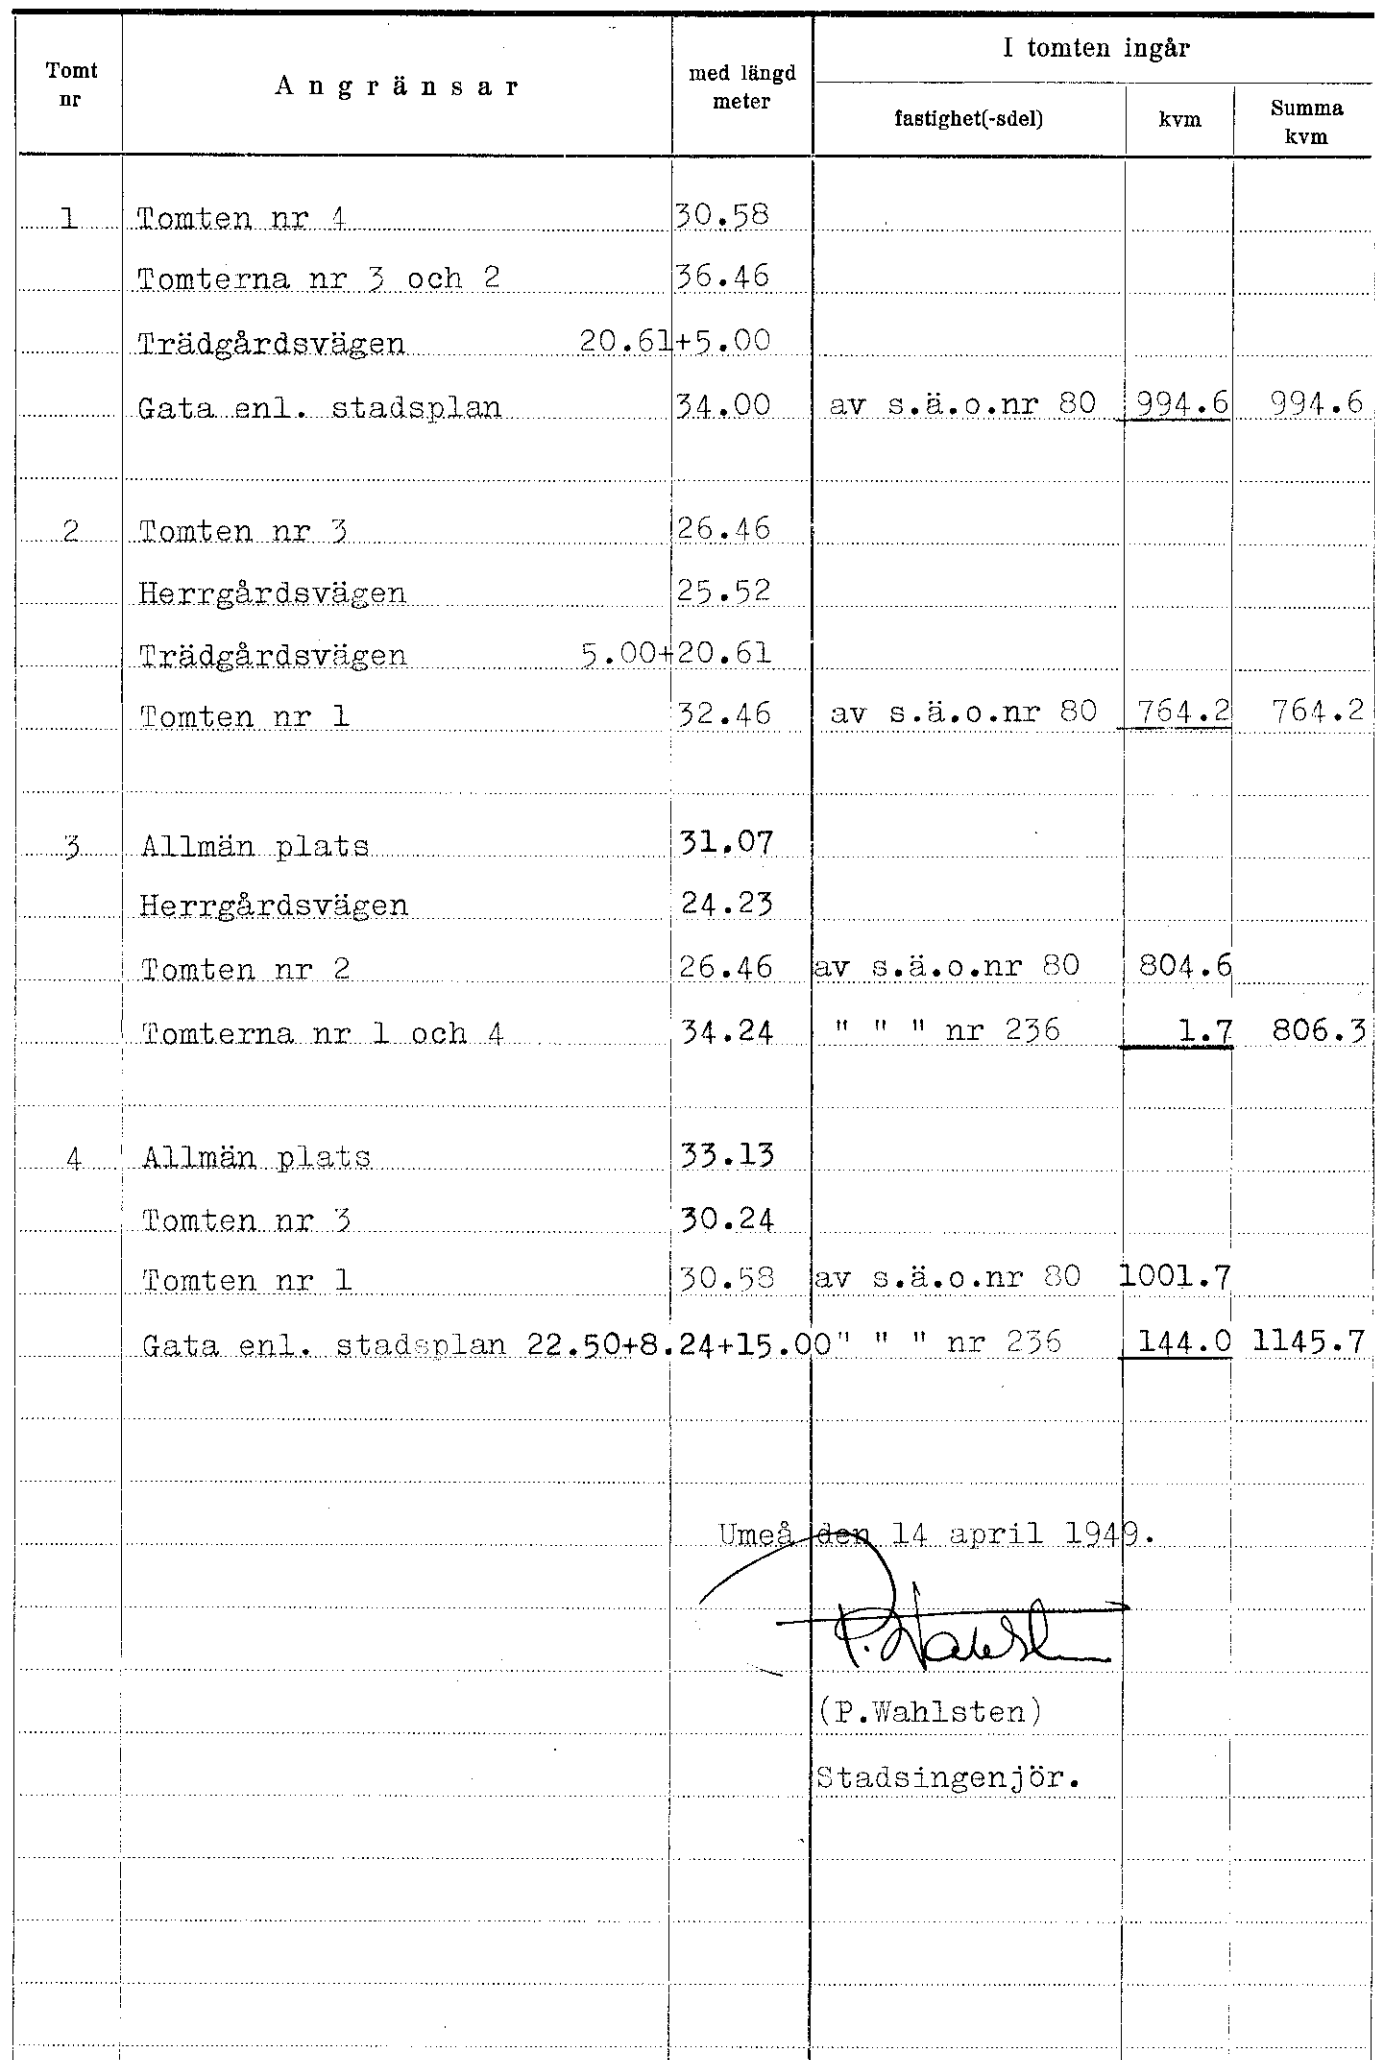 Tomt nr Angränsar med längd meter I tomten ingår
fastighet(-sdel) kvm Summa kvm
1 Tomten nr 4 30.58
Tomterna nr 3 och 2 36.46
Trädgårdsvägen 20.61+5.00
Gata enl. stadsplan 34.00 av s.ä.o.nr 80 994.6 994.6
2 Tomten nr 3 26.46
Herrgårdsvägen 25.52
Trädgårdsvägen 5.00+20.61
Tomten nr 1 32.46 av s.ä.o.nr 80 764.2 764.2
3 Allmän plats 31.07
Herrgårdsvägen 24.23
Tomten nr 2 26.46 av s.ä.o.nr 80 804.6
Tomterna nr 1 och 4 34.24 " " " nr 236 1.7 806.3
4 Allmän plats 33.13
Tomten nr 3 30.24
Tomten nr 1 30.58 av s.ä.o.nr 80 1001.7
Gata enl. stadsplan 22.50+8.24+15.00 " " " nr 236 144.0 1145.7
Umeå den 14 april 1949.
P. Wahlsten
(P.Wahlsten)
Stadsingenjör.